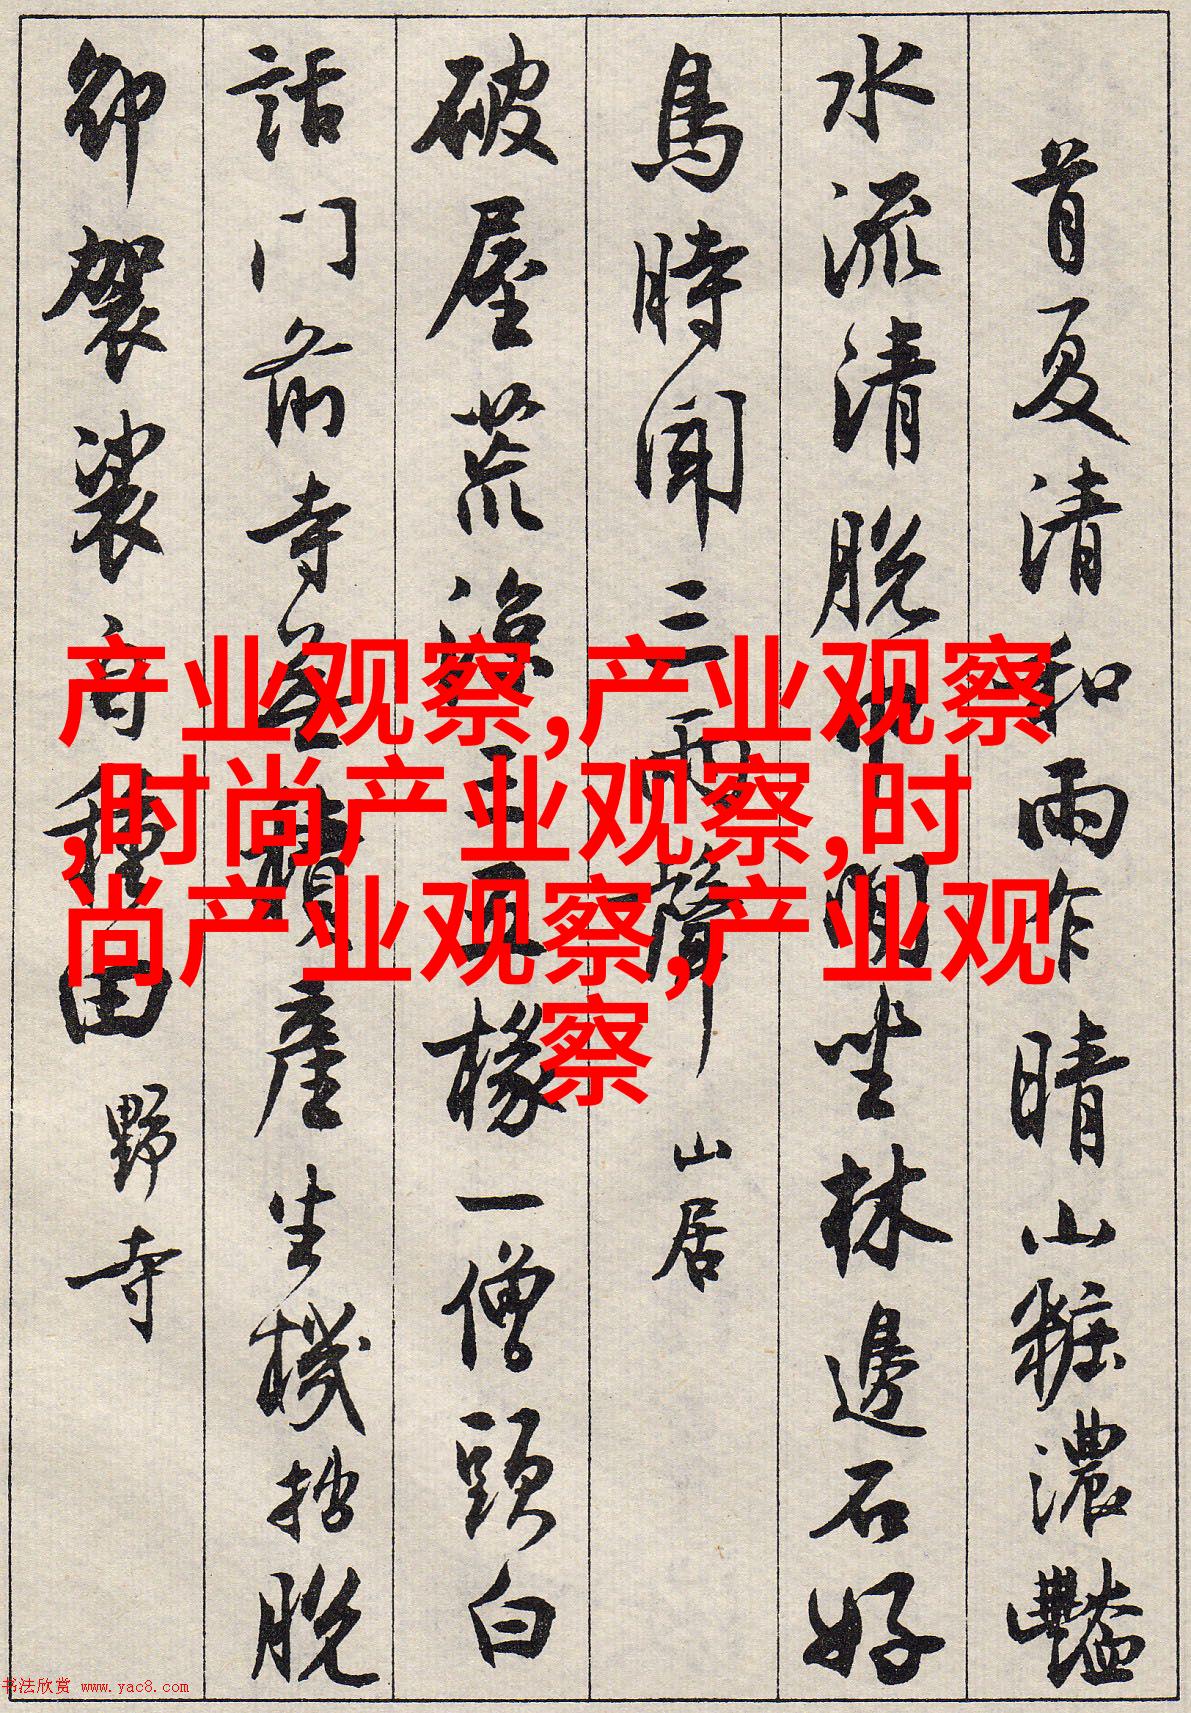 首夏清和雨乍晴山粧濃豔
水流清脫巾閒坐林邊石好
鳥時聞三兩聲 山居
破屋荒涼三五椽一僧頭白
話門前寺無積產生機拙脫
卻袈裟自種田 野寺
产业观察,产业观察
,时尚产业观察,时
尚产业观察,产业观
察
书法欣赏 www.yac8.com